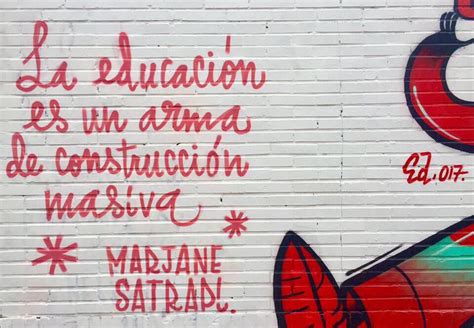 La educación
es un arma
de construcción
masiva
MARJANE
SATRAPI.
Ed. 017.